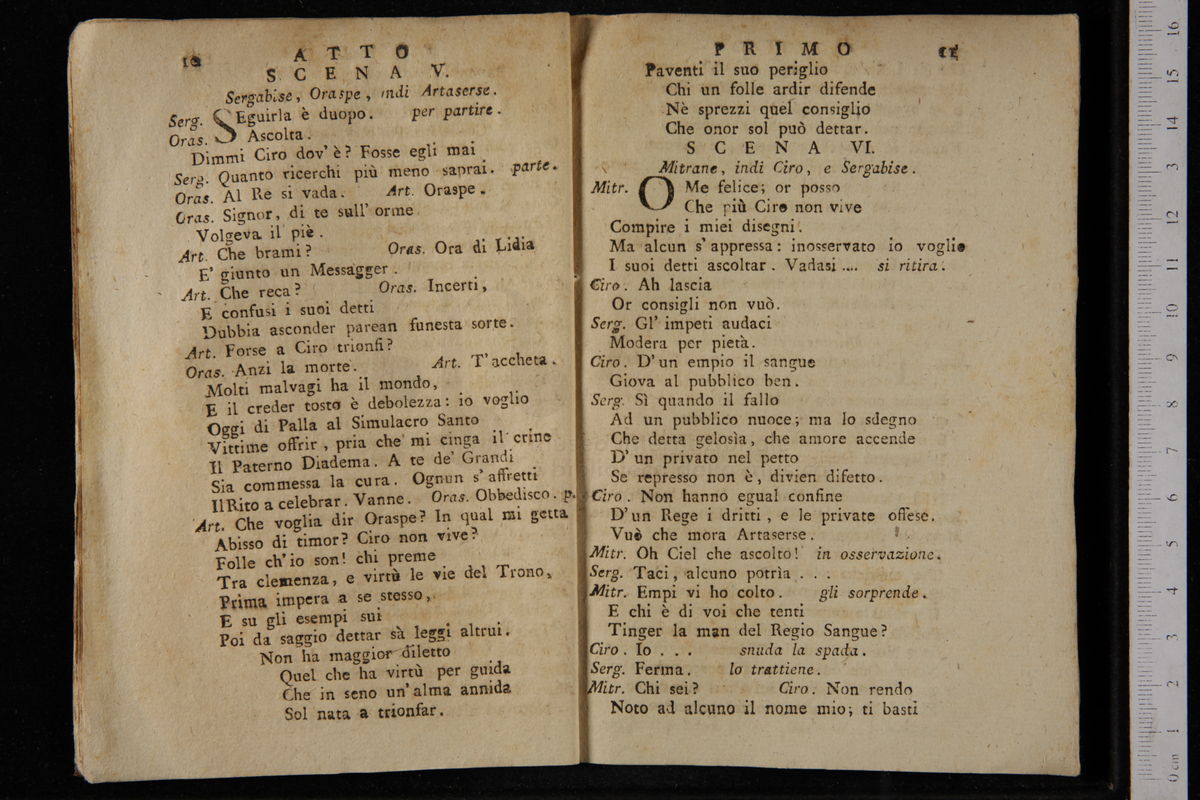 10 ATTO
SCENA V.
Sergabise, Oraspe, indi Artaserse.
Serg. SEguirla è duopo. per partire.
Oras. Ascolta.
Dimmi Ciro dov' è? Fosse egli mai
Serg. Quanto ricerchi più meno saprai. parte.
Oras. Al Re si vada. Art. Oraspe.
Oras. Signor, di te sull' orme
Volgeva il piè.
Art. Che brami? Oras. Ora di Lidia
E' giunto un Messagger.
Art. Che reca? Oras. Incerti,
E confusi i suoi detti
Dubbia asconder parean funesta sorte.
Art. Forse a Ciro trionfi?
Oras. Anzi la morte. Art. T'accheta.
Molti malvagi ha il mondo,
E il creder tosto è debolezza: io voglio
Oggi di Palla al Simulacro Santo
Vittime offrir, pria che mi cinga il crine
Il Paterno Diadema. A te de' Grandi
Sia commessa la cura. Ognun s' affretti
Il Rito a celebrar. Vanne. Oras. Obbedisco. p.
Art. Che voglia dir Oraspe? In qual mi getta
Abisso di timor? Ciro non vive?
Folle ch'io son! chi preme
Tra clemenza, e virtù le vie del Trono,
Prima impera a se stesso,
E su gli esempi sui
Poi da saggio dettar sà leggi altrui.
Non ha maggior diletto
Quel che ha virtù per guida
Che in seno un' alma annida
Sol nata a trionfar.
PRIMO 11
Paventi il suo periglio
Chi un folle ardir difende
Nè sprezzi quel consiglio
Che onor sol può dettar.
SCENA VI.
Mitrane, indi Ciro, e Sergabise.
Mitr. O Me felice; or posso
Che più Ciro non vive
Compire i miei disegni.
Ma alcun s' appressa: inosservato io voglio
I suoi detti ascoltar. Vadasi .... si ritira.
Ciro. Ah lascia
Or consigli non vuò.
Serg. Gl' impeti audaci
Modera per pietà.
Ciro. D' un empio il sangue
Giova al pubblico ben.
Serg. Sì quando il fallo
Ad un pubblico nuoce; ma lo sdegno
Che detta gelosìa, che amore accende
D' un privato nel petto
Se represso non è, divien difetto.
Ciro. Non hanno egual confine
D'un Rege i dritti, e le private offese.
Vuò che mora Artaserse.
Mitr. Oh Ciel che ascolto! in osservazione.
Serg. Taci, alcuno potrìa . . .
Mitr. Empi vi ho colto. gli sorprende.
E chi è di voi che tenti
Tinger la man del Regio Sangue?
Ciro. Io . . . snuda la spada.
Serg. Ferma. lo trattiene.
Mitr. Chi sei? Ciro. Non rendo
Noto ad alcuno il nome mio; ti basti
0 cm 1 2 3 4 5 6 7 8 9 10 11 12 13 14 15 16